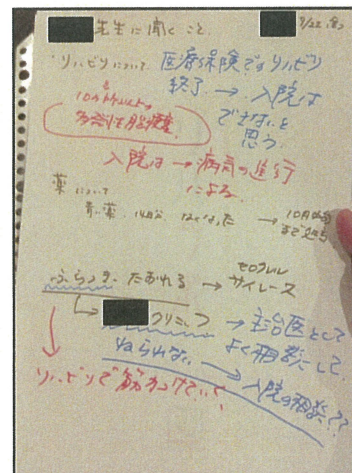 先生に聞くこと
9/22(金)
・リハビリについて 医療保険でのリハビリ
終了 → 入院は
できないと
思う。
多発性脳梗塞
入院は → 病気の進行
による。
薬について
青い薬 14日分 なくなった → 10月
まで処方
ふらつき たおれる → セロクエル
サイレース
クリニック → 主治医として
よく相談して。
ねられない → 入院の相談??
リハビリで筋力つけていく。